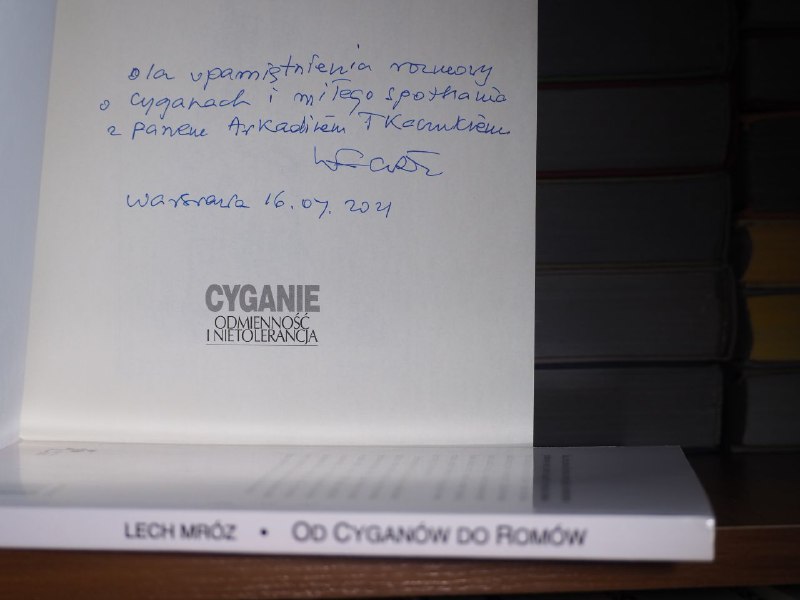 dla upamiętnienia rozmowy
o cyganach i miłego spotkania
z panem Arkadiem Tkaczukiem
Warszawa 16.07.2021
CYGANIE
ODMIENNOŚĆ
I NIETOLERANCJA
LECH MRÓZ • OD CYGANÓW DO ROMÓW